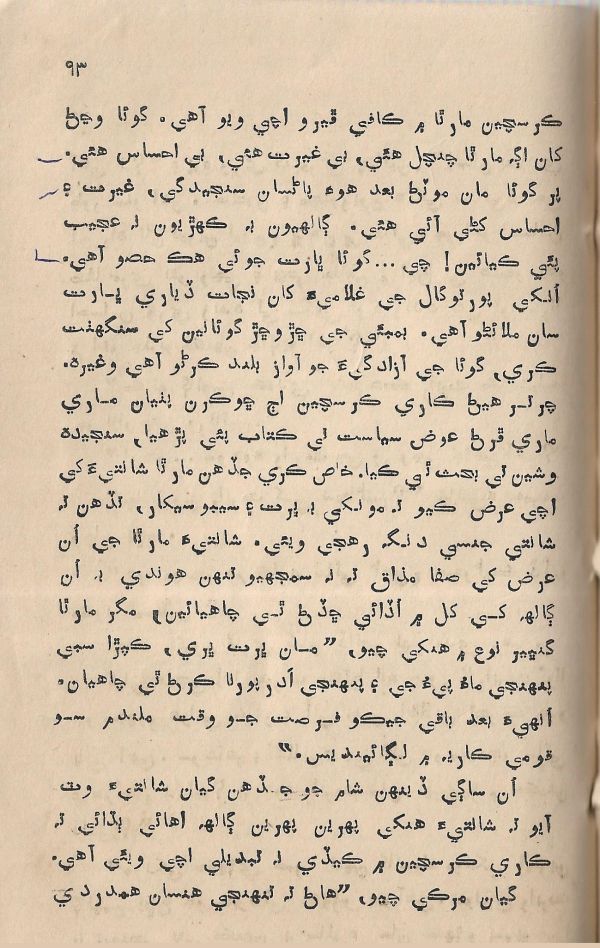 ۹۳
ڪرسچين مارٿا ۾ ڪافي ڦيرو اچي ويو آهي. گوئا وڃڻ
کان اڳ، مارٿا چنچل هئي، بي غيرت هئي، بي احساس هئي.
پر گوئا مان موٽڻ بعد هوءَ پاڻسان سنجيدگي، غيرت ۽
احساس کڻي آئي هئي. ڳالهيون بہ ڪهڙيون نہ عجيب
پئي ڪيائين! چي...گوئا ڀارت جوئي هڪ حصو آهي.
اُنکي پورٽوگال جي غلاميءَ کان نجات ڏياري ڀـارت
سان ملائڻو آهي. بمبئي جي چڙوچڙ گوئانين کي سنگهٺت
ڪري، گوئا جي آزادگيءَ جو آواز بلند ڪرڻو آهي وغيره.
چرٽـر هيڻ ڪاري ڪرسچين اڄ ڇوڪرن پٺيان مـاري
ماري ڦرڻ عوض سياست تي ڪتاب پئي پڙهيا، سنجيده
وشين تي بحث ٿي ڪيا. خاص ڪري جڏهن مارٿا شانتيءَ کي
اچي عرض ڪيو تہ مونکي بہ ڀرت ۽ سيبو سيکار، تڏهن تہ
شانتي جنسي دنگہ رهجي ويئي. شانتيءَ مارٿا جي اُن
عرض کي صفا مذاق تہ نہ سمجهيو تنهن هوندي بہ اُن
ڳالهہ کـي کل ۾ اُڏائي ڇڏڻ ٿـي چاهيائين، مگر مارٿا
گنڀير نوع ۾ هنکي چيو، ”مـان ڀرت ڀري، ڪپڙا سبي
پنهنجي ماءُ پيءُ جي ۽ پنهنجي اُدرپورنا ڪرڻ ٿي چاهيان.
اُنهيءَ بعد باقي جيڪو فـرصت جـو وقت ملندم سـو
قومي ڪاريہ ۾ لڳائينديس.“
اُن ساڳي ڏينهن شام جو جڏهن گيان شانتيءَ وٽ
آيو تہ شانتيءَ هنکي پهرين پهرين ڳالهہ اهائي ٻڌائي تہ
ڪاري ڪرسچين ۾ ڪيڏي نہ تبديلي اچي ويئي آهي.
گيان مرڪي چيو، ”هاڻ تہ تنهنجي هنسان همدردي